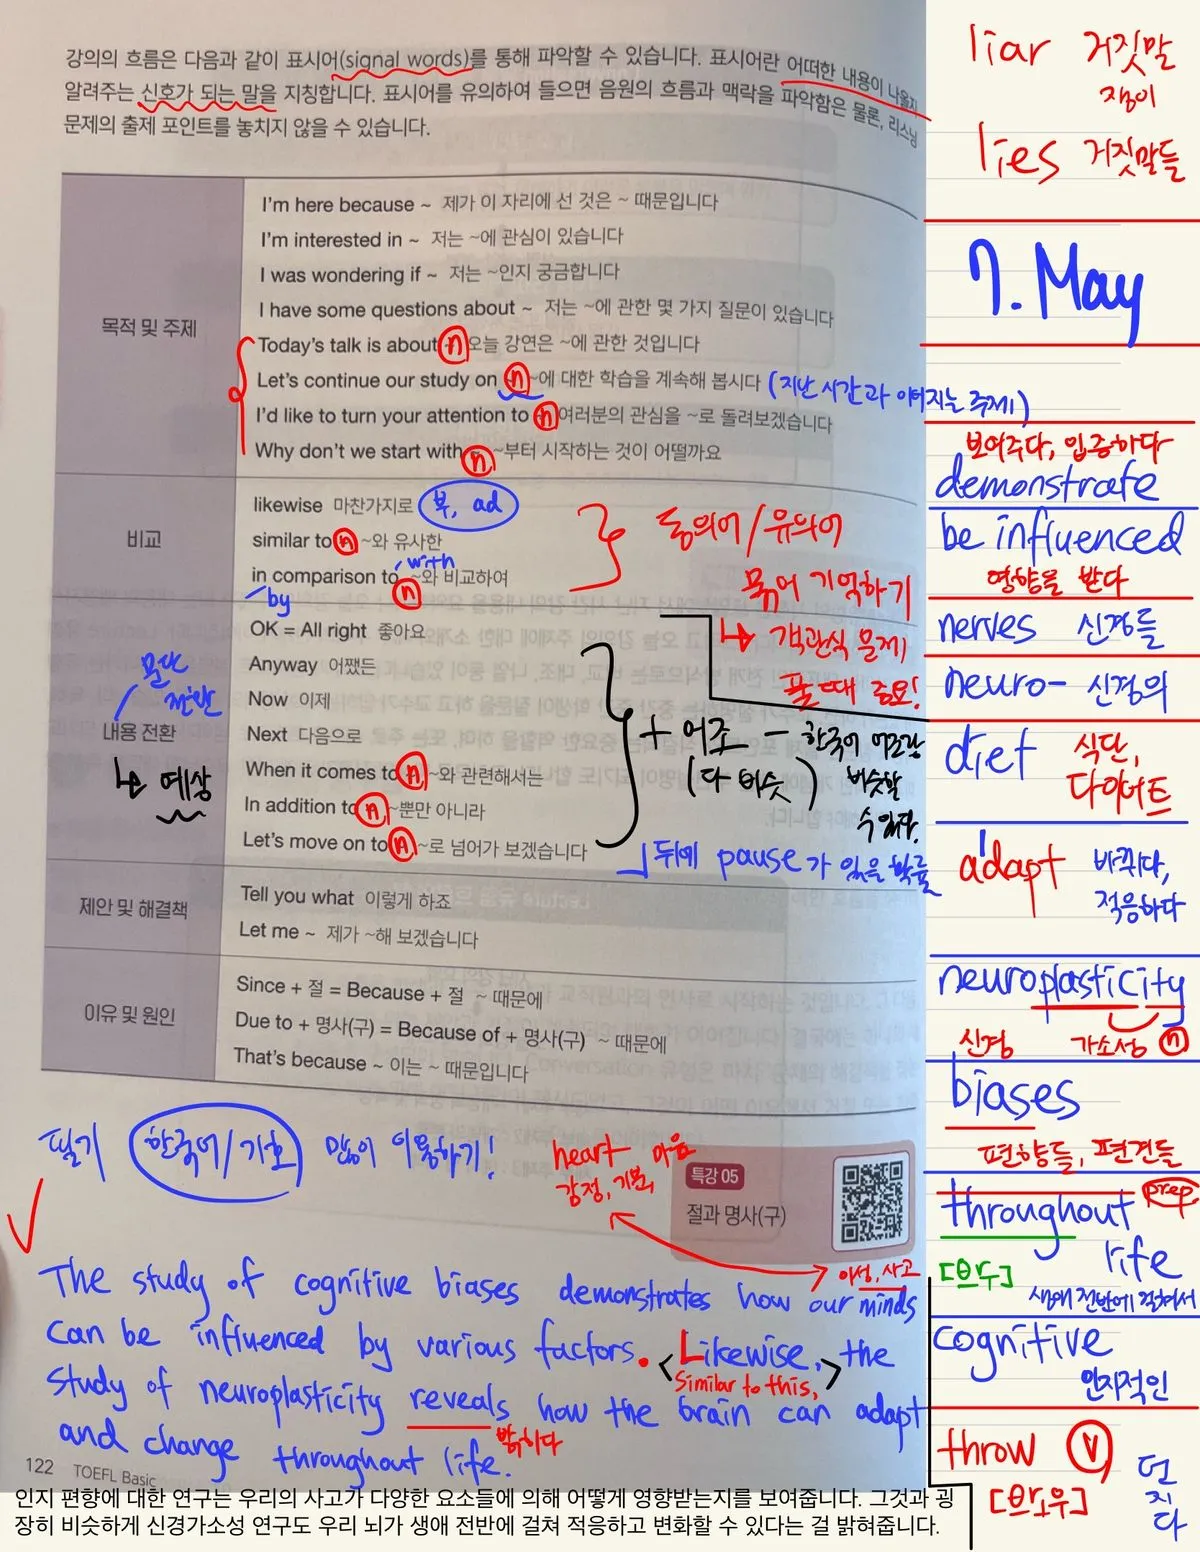 강의의 흐름은 다음과 같이 표시어(signal words)를 통해 파악할 수 있습니다. 표시어란 어떠한 내용이 나올지
알려주는 신호가 되는 말을 지칭합니다. 표시어를 유의하여 들으면 음원의 흐름과 맥락을 파악함은 물론, 리스닝
문제의 출제 포인트를 놓치지 않을 수 있습니다.
목적 및 주제
I'm here because ~ 제가 이 자리에 선 것은 ~ 때문입니다
I'm interested in ~ 저는 ~에 관심이 있습니다
I was wondering if ~ 저는 ~인지 궁금합니다
I have some questions about ~ 저는 ~에 관한 몇 가지 질문이 있습니다
Today's talk is about n 오늘 강연은 ~에 관한 것입니다
Let's continue our study on n ~에 대한 학습을 계속해 봅시다 (지난 시간과 이어지는 주제)
I'd like to turn your attention to n 여러분의 관심을 ~로 돌려보겠습니다
Why don't we start with n ~부터 시작하는 것이 어떨까요
비교
likewise 마찬가지로 부, ad
similar to n ~와 유사한
with
in comparison to ~와 비교하여
by n
동의어/유의어
묶어 기억하기
↳ 객관식 문제
풀 때 중요!
내용 전환
문단
전환
↳ 예상
OK = All right 좋아요
Anyway 어쨌든
Now 이제
Next 다음으로
When it comes to n ~와 관련해서는
In addition to n ~뿐만 아니라
Let's move on to n ~로 넘어가 보겠습니다
+ 어조 - 한국어 어조랑
(다 비슷) 비슷할
수 있다.
뒤에 pause가 있을 확률
제안 및 해결책
Tell you what 이렇게 하죠
Let me ~ 제가 ~해 보겠습니다
이유 및 원인
Since + 절 = Because + 절 ~ 때문에
Due to + 명사(구) = Because of + 명사(구) ~ 때문에
That's because ~ 이는 ~ 때문입니다
필기 한국어/기호 많이 이용하기!
heart 마음
감정, 기분
특강 05
절과 명사(구)
이성, 사고
The study of cognitive biases demonstrates how our minds
can be influenced by various factors. Likewise, the
Similar to this,
study of neuroplasticity reveals how the brain can adapt
밝히다
and change throughout life.
122 TOEFL Basic
인지 편향에 대한 연구는 우리의 사고가 다양한 요소들에 의해 어떻게 영향받는지를 보여줍니다. 그것과 굉
장히 비슷하게 신경가소성 연구도 우리 뇌가 생애 전반에 걸쳐 적응하고 변화할 수 있다는 걸 밝혀줍니다.
liar 거짓말
쟁이
lies 거짓말들
7. May
보여주다, 입증하다
demonstrate
be influenced
영향을 받다
nerves 신경들
neuro- 신경의
diet 식단,
다이어트
adapt 바뀌다,
적응하다
neuroplasticity
신경 가소성 n
biases
편향들, 편견들
prep
throughout
life
생애 전반에 걸쳐서
cognitive
인지적인
throw v
던지다